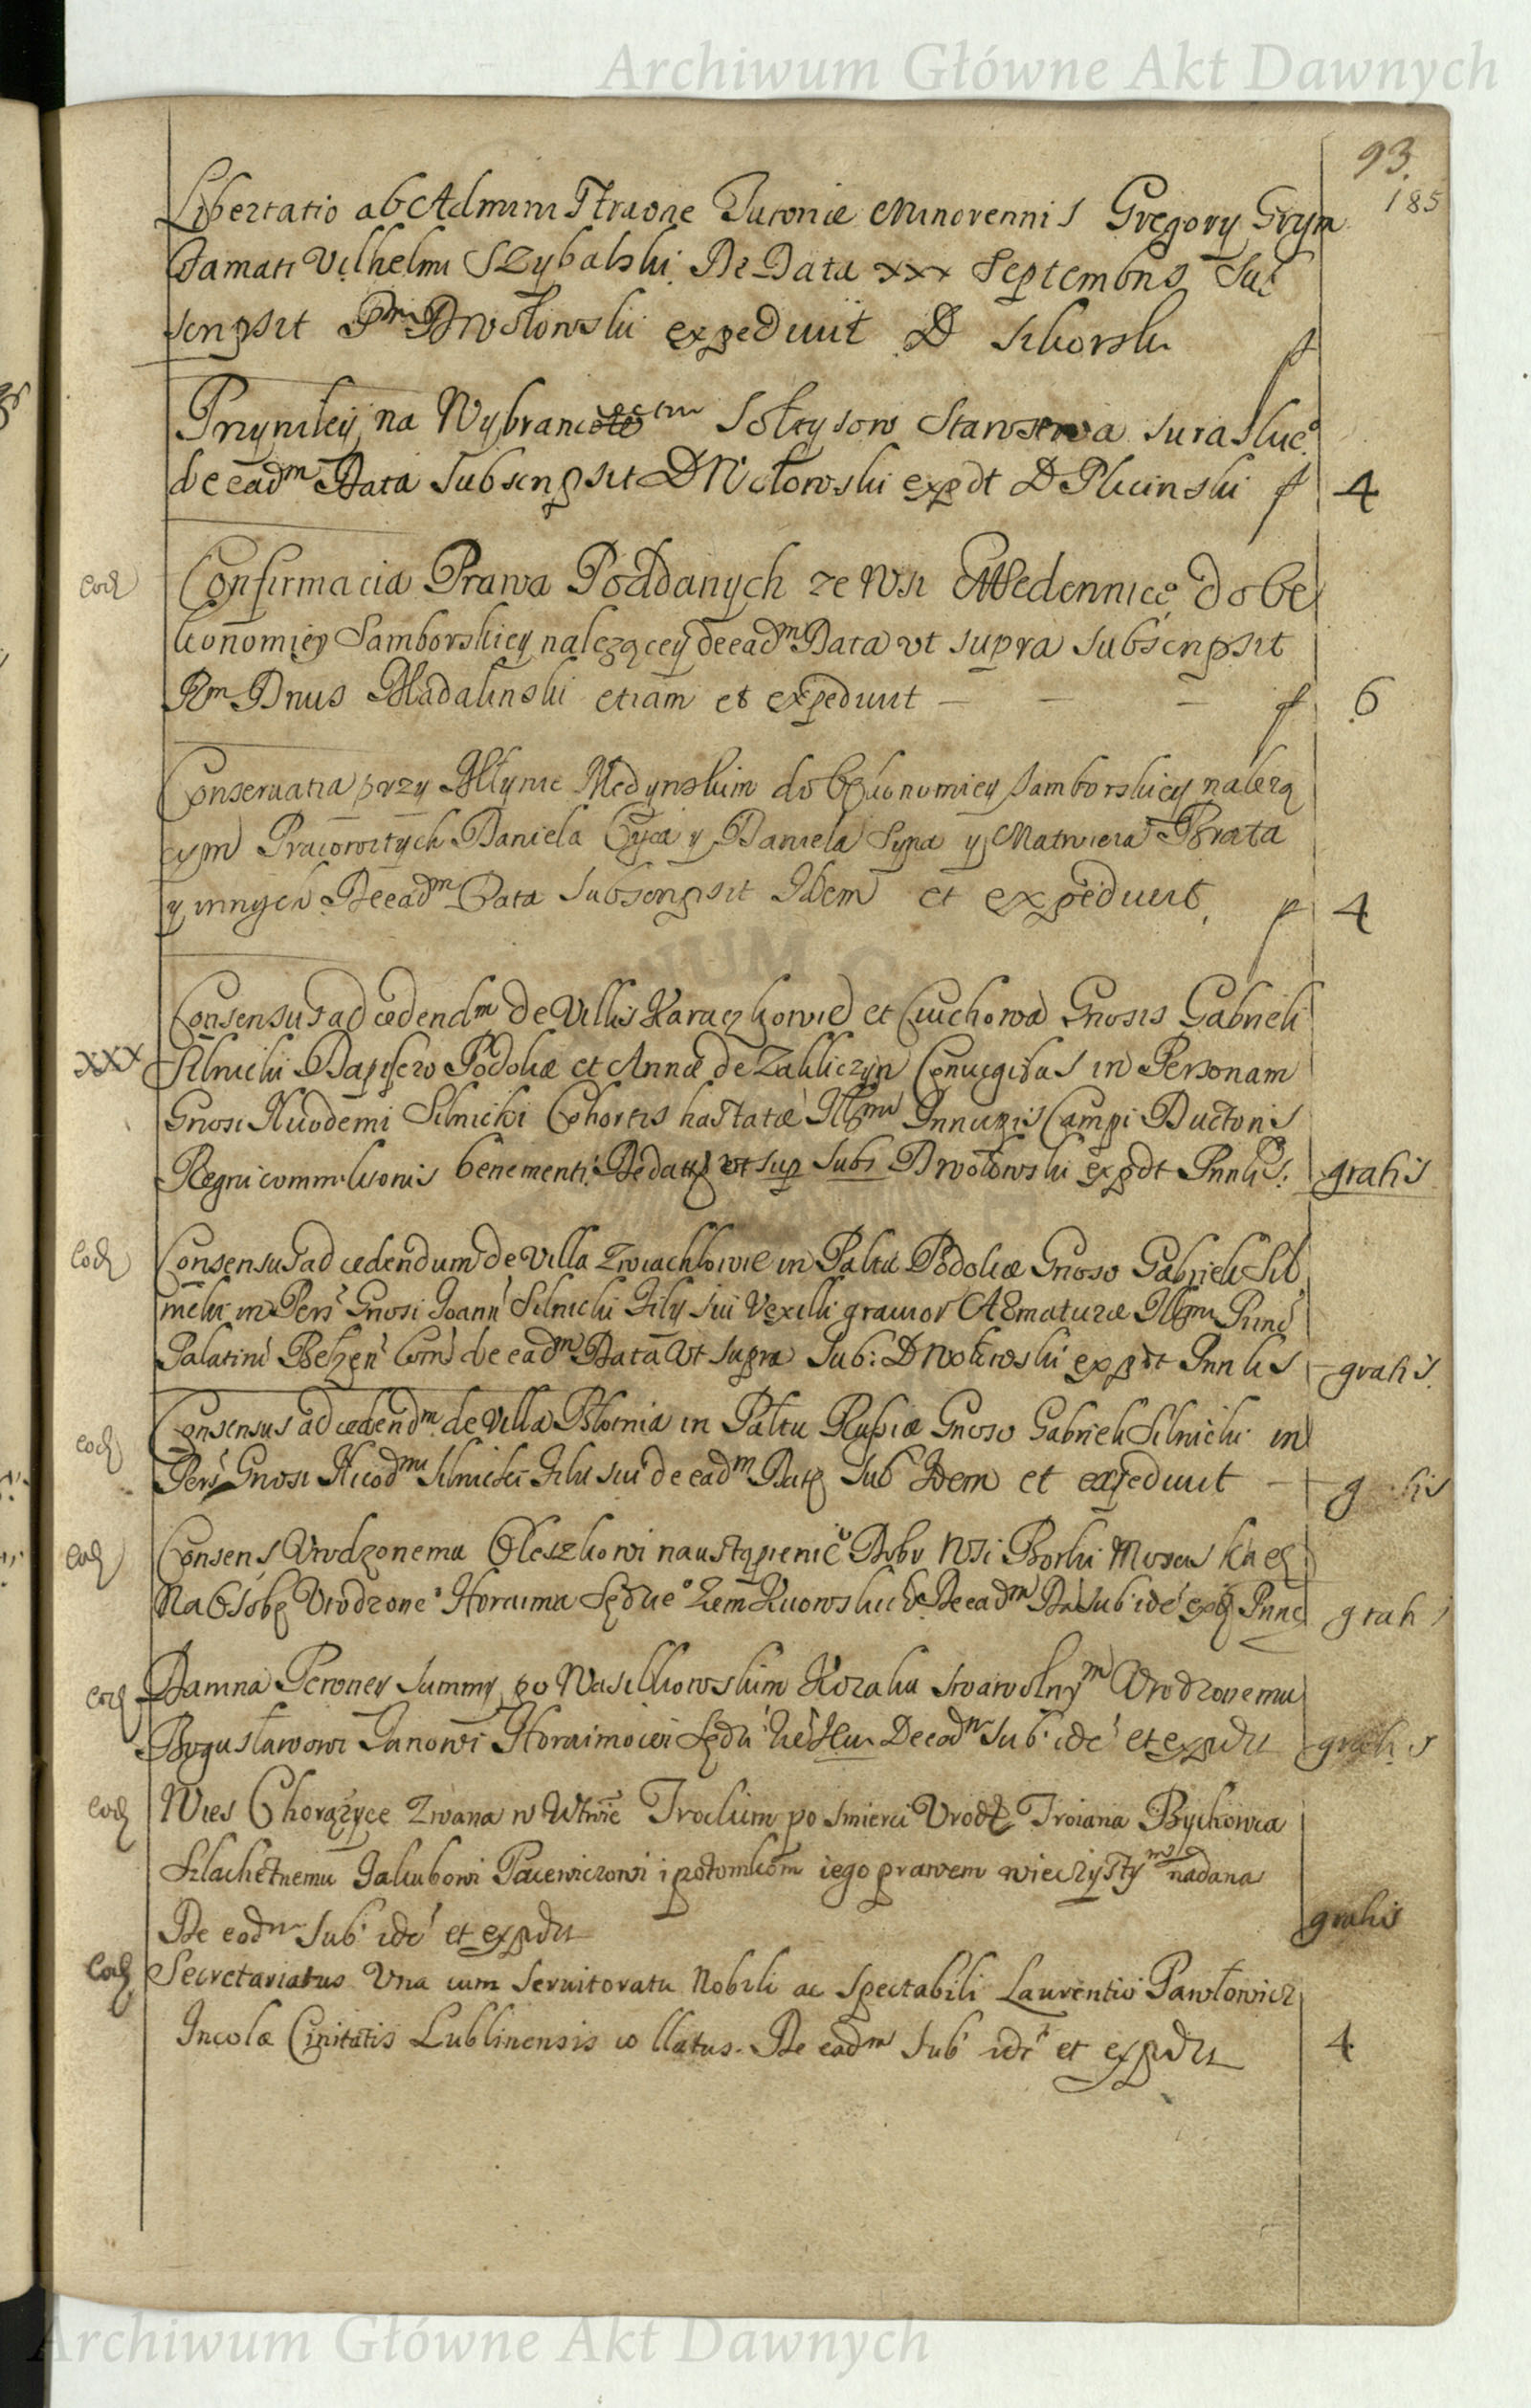 Archiwum Główne Akt Dawnych
93.
185
Libertatio ab Administraone Tutoriæ Minorennis Gregory Grym
Famati Vilhelmi Szybalski. De Data xxx Septembris Sub
scripsit Drvołowski expedivit D Sikorski
Przywiley na Wybraniectw Sołtysow Starostwa Suraskiego
de eadm Data Subscripsit D Wołowski expdt D Plicinski f 4
eod Confirmacia Prawa Poddanych ze Wsi Medennice do Oe
konomiey Samborskiey nalezącey de eadm Data ut supra subscripsit
Rm Dnus Madalinski etiam et expedivit — — — f 6
Conservatia przy Młynie Medynskim do Oekonomiey Samborskiey nalezą
cym Pracowitych Daniela Oyca y Daniela Syna y Matwieia Brata
y innych De eadm Data Subscripsit Idem et expedivit f 4
Consensus ad cedendm de Villis Karaczkowie et Ciuchowa Gnosis Gabrieli
xxx Silnicki Dapifero Podoliæ et Annæ de Zakliczyn Coniugibus in Personam
Gnosi Nicodemi Silnicki Cohortis hastatæ Campi Ductoris
Regni commilitonis benemeriti. De data ut sup Subs Drvołowski expdt gratis
eod Consensus ad cedendum de Villa Zwiachlowie in Paltu Podoliæ Gnoso Gabrieli Sil
nicki in Pers Gnosi Joanni Silnicki Filij sui Vexilli gravior Armaturæ
Palatini Belzen de eadm Data ut supra Sub: D Wołowski expdt gratis
eod Consensus ad cedendm de Villa Błotnia in Paltu Russiæ Gnoso Gabrieli Silnicki in
Pers Gnosi Nicodmi Silnicki Filii sui de eadm Data Sub Idem et expedivit — gratis
eod Consens Urodzonemu Oleszkowi na ustąpienie Dobr Wsi Borki
Na Osobę Urodzonego Horaima Sędzie Zem Kiiowskiego De eadm sub ide gratis
eod Damna Pewney Summy po Wasilkowskim Kozaku swawolnym Urodzonemu
Bogusławowi Janowi Horaimowi De eadm Sub ide et expdit gratis
eod Wies Chorążyce Zwana w Wtwie Trockim po smierci Urodz Troiana Bychowca
Szlachetnemu Jakubowi Pacewiczowi i potomkom iego prawem wieczystym nadana
De eodm Sub ide et expdit gratis
eod Secretariatus Una cum Servitoratu Nobili ac Spectabili Laurentio Pawłowicz
Incolæ Civitatis Lublinensis collatus. De eadm Sub ide et expdit 4
Archiwum Główne Akt Dawnych